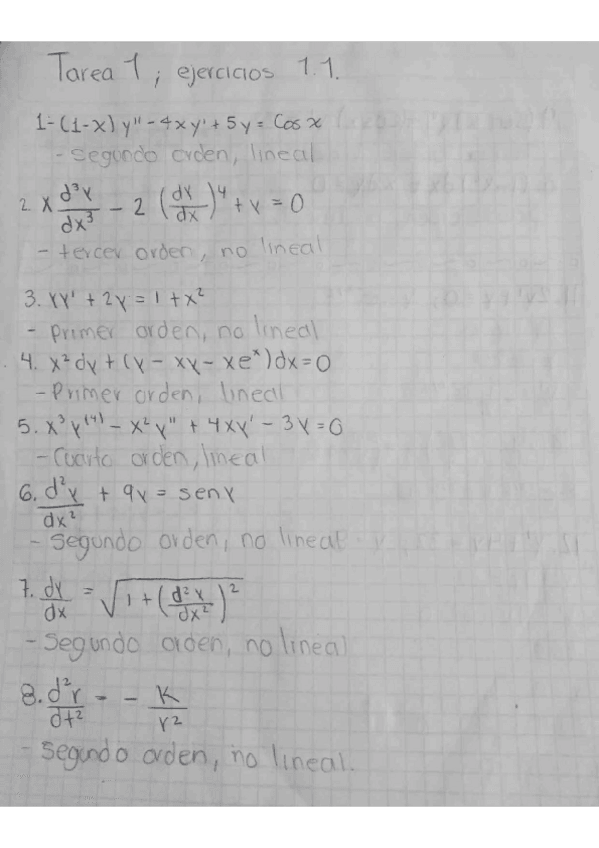 Tarea 1; ejercicios 1.1.
1-(1-x) y'' - 4xy' + 5y = Cos x
- Segundo orden, lineal
2. x d³y/dx³ - 2 (dy/dx)⁴ + y = 0
- tercer orden, no lineal
3. yy' + 2y = 1 + x²
- Primer orden, no lineal
4. x²dy + (y - xy - xeˣ)dx = 0
- Primer orden, lineal
5. x³y⁽⁴⁾ - x²y'' + 4xy' - 3y = 0
- Cuarto orden, lineal
6. d²y/dx² + 9y = sen y
- Segundo orden, no lineal
7. dy/dx = √(1 + (d²y/dx²)²)
- Segundo orden, no lineal
8. d²r/dt² = - K/r²
- Segundo orden, no lineal.